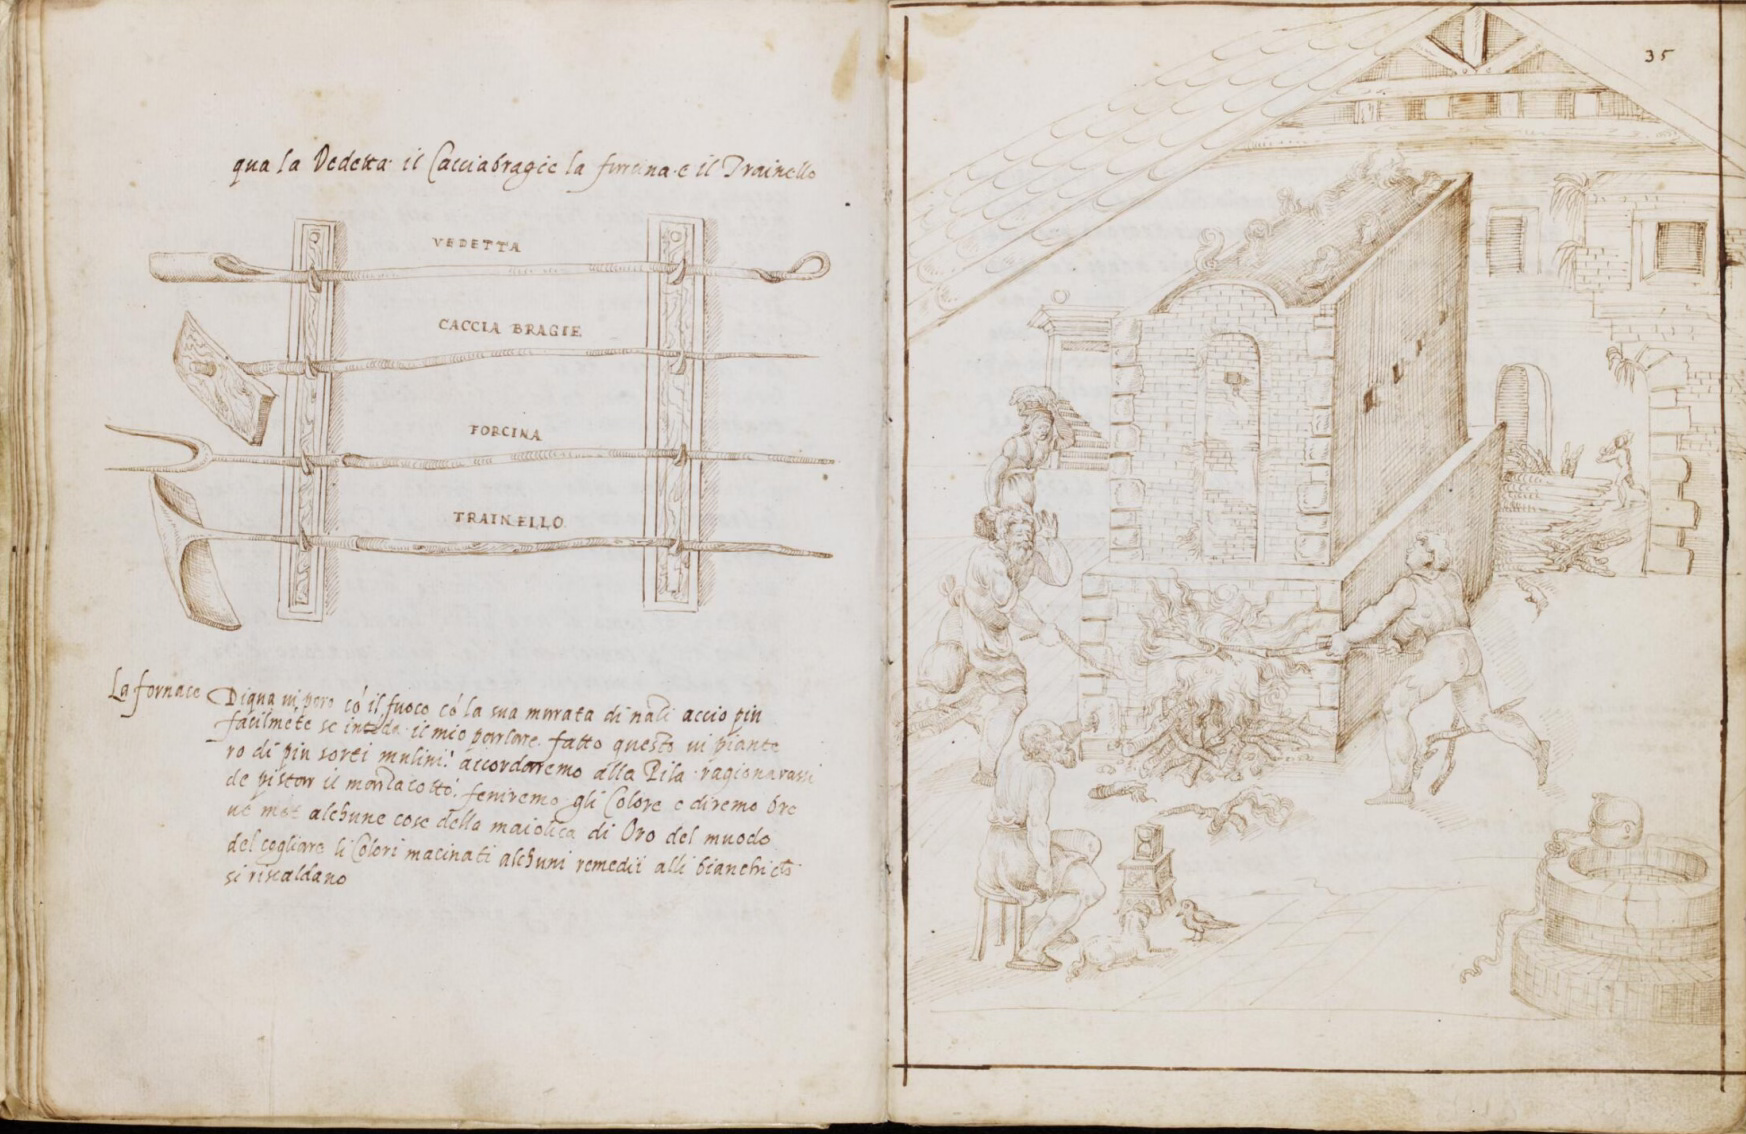 qua la Vedetta il Cacciabragie la furcina e il Trainello
VEDETTA
CACCIA BRAGIE
FORCINA
TRAINELLO
La fornace
Diqua vi pero có il fuoco có la sua murata di nati accio piu
facilmēte se intēda il mio parlare fatto questo vi piante
ro di piu sorti mulini accordarremo alla Pila ragionarassi
de pistar il marzacotto feniremo gli Colore e diremo bre
ve mēt alchune cose della maiolica di Oro del muodo
del cogliare li Colori macinati alchuni remedii alli bianchi ch
si riscaldano
35